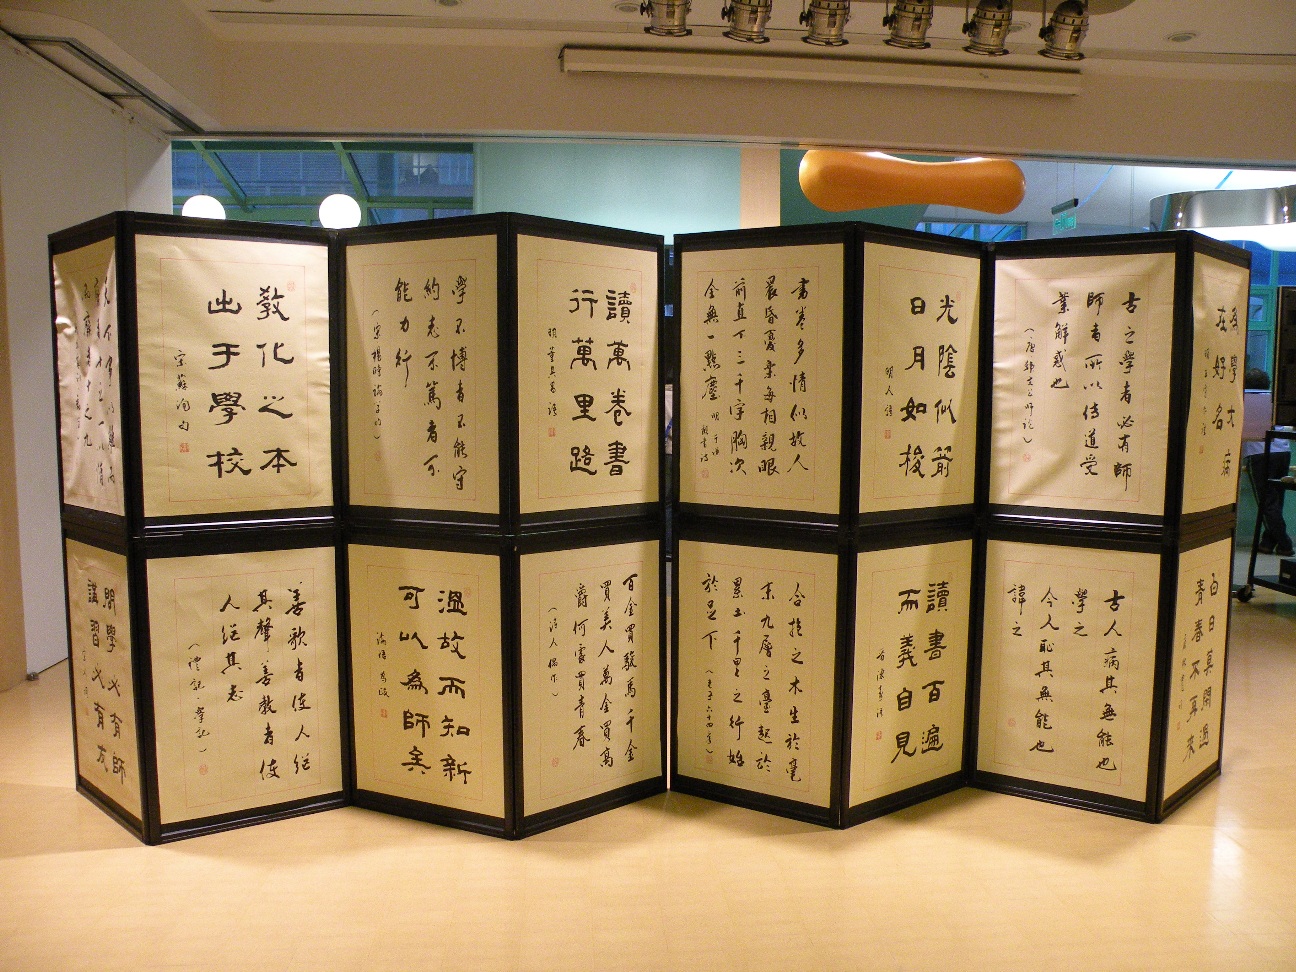 為學大病
在好名
古之學者必有師
師者所以傳道受
業解惑也
(唐 韓文公師說)
光陰似箭
日月如梭
明人語
書卷多情似故人
晨昏憂樂每相親眼
前直下三千字胸次
全無一點塵 明 于謙 觀書詩
讀萬卷書
行萬里路
明 董其昌語
學不博者不能守
約志不篤者不
能力行
(宋 楊時
教化之本
出于學校
宋蘇洵句
白日莫閒過
青春不再來
古人病其無能也
學之
今人恥其無能也
諱之
讀書百遍
而義自見
合抱之木生於毫
末九層之臺起於
累土千里之行始
於足下 (老子六十四章)
百金買駿馬千金
買美人萬金買高
爵何處買青春
溫故而知新
可以為師矣
論語 為政
善歌者使人繼
其聲善教者使
人繼其志
(禮記·學記)
問學必有師
講習必有友